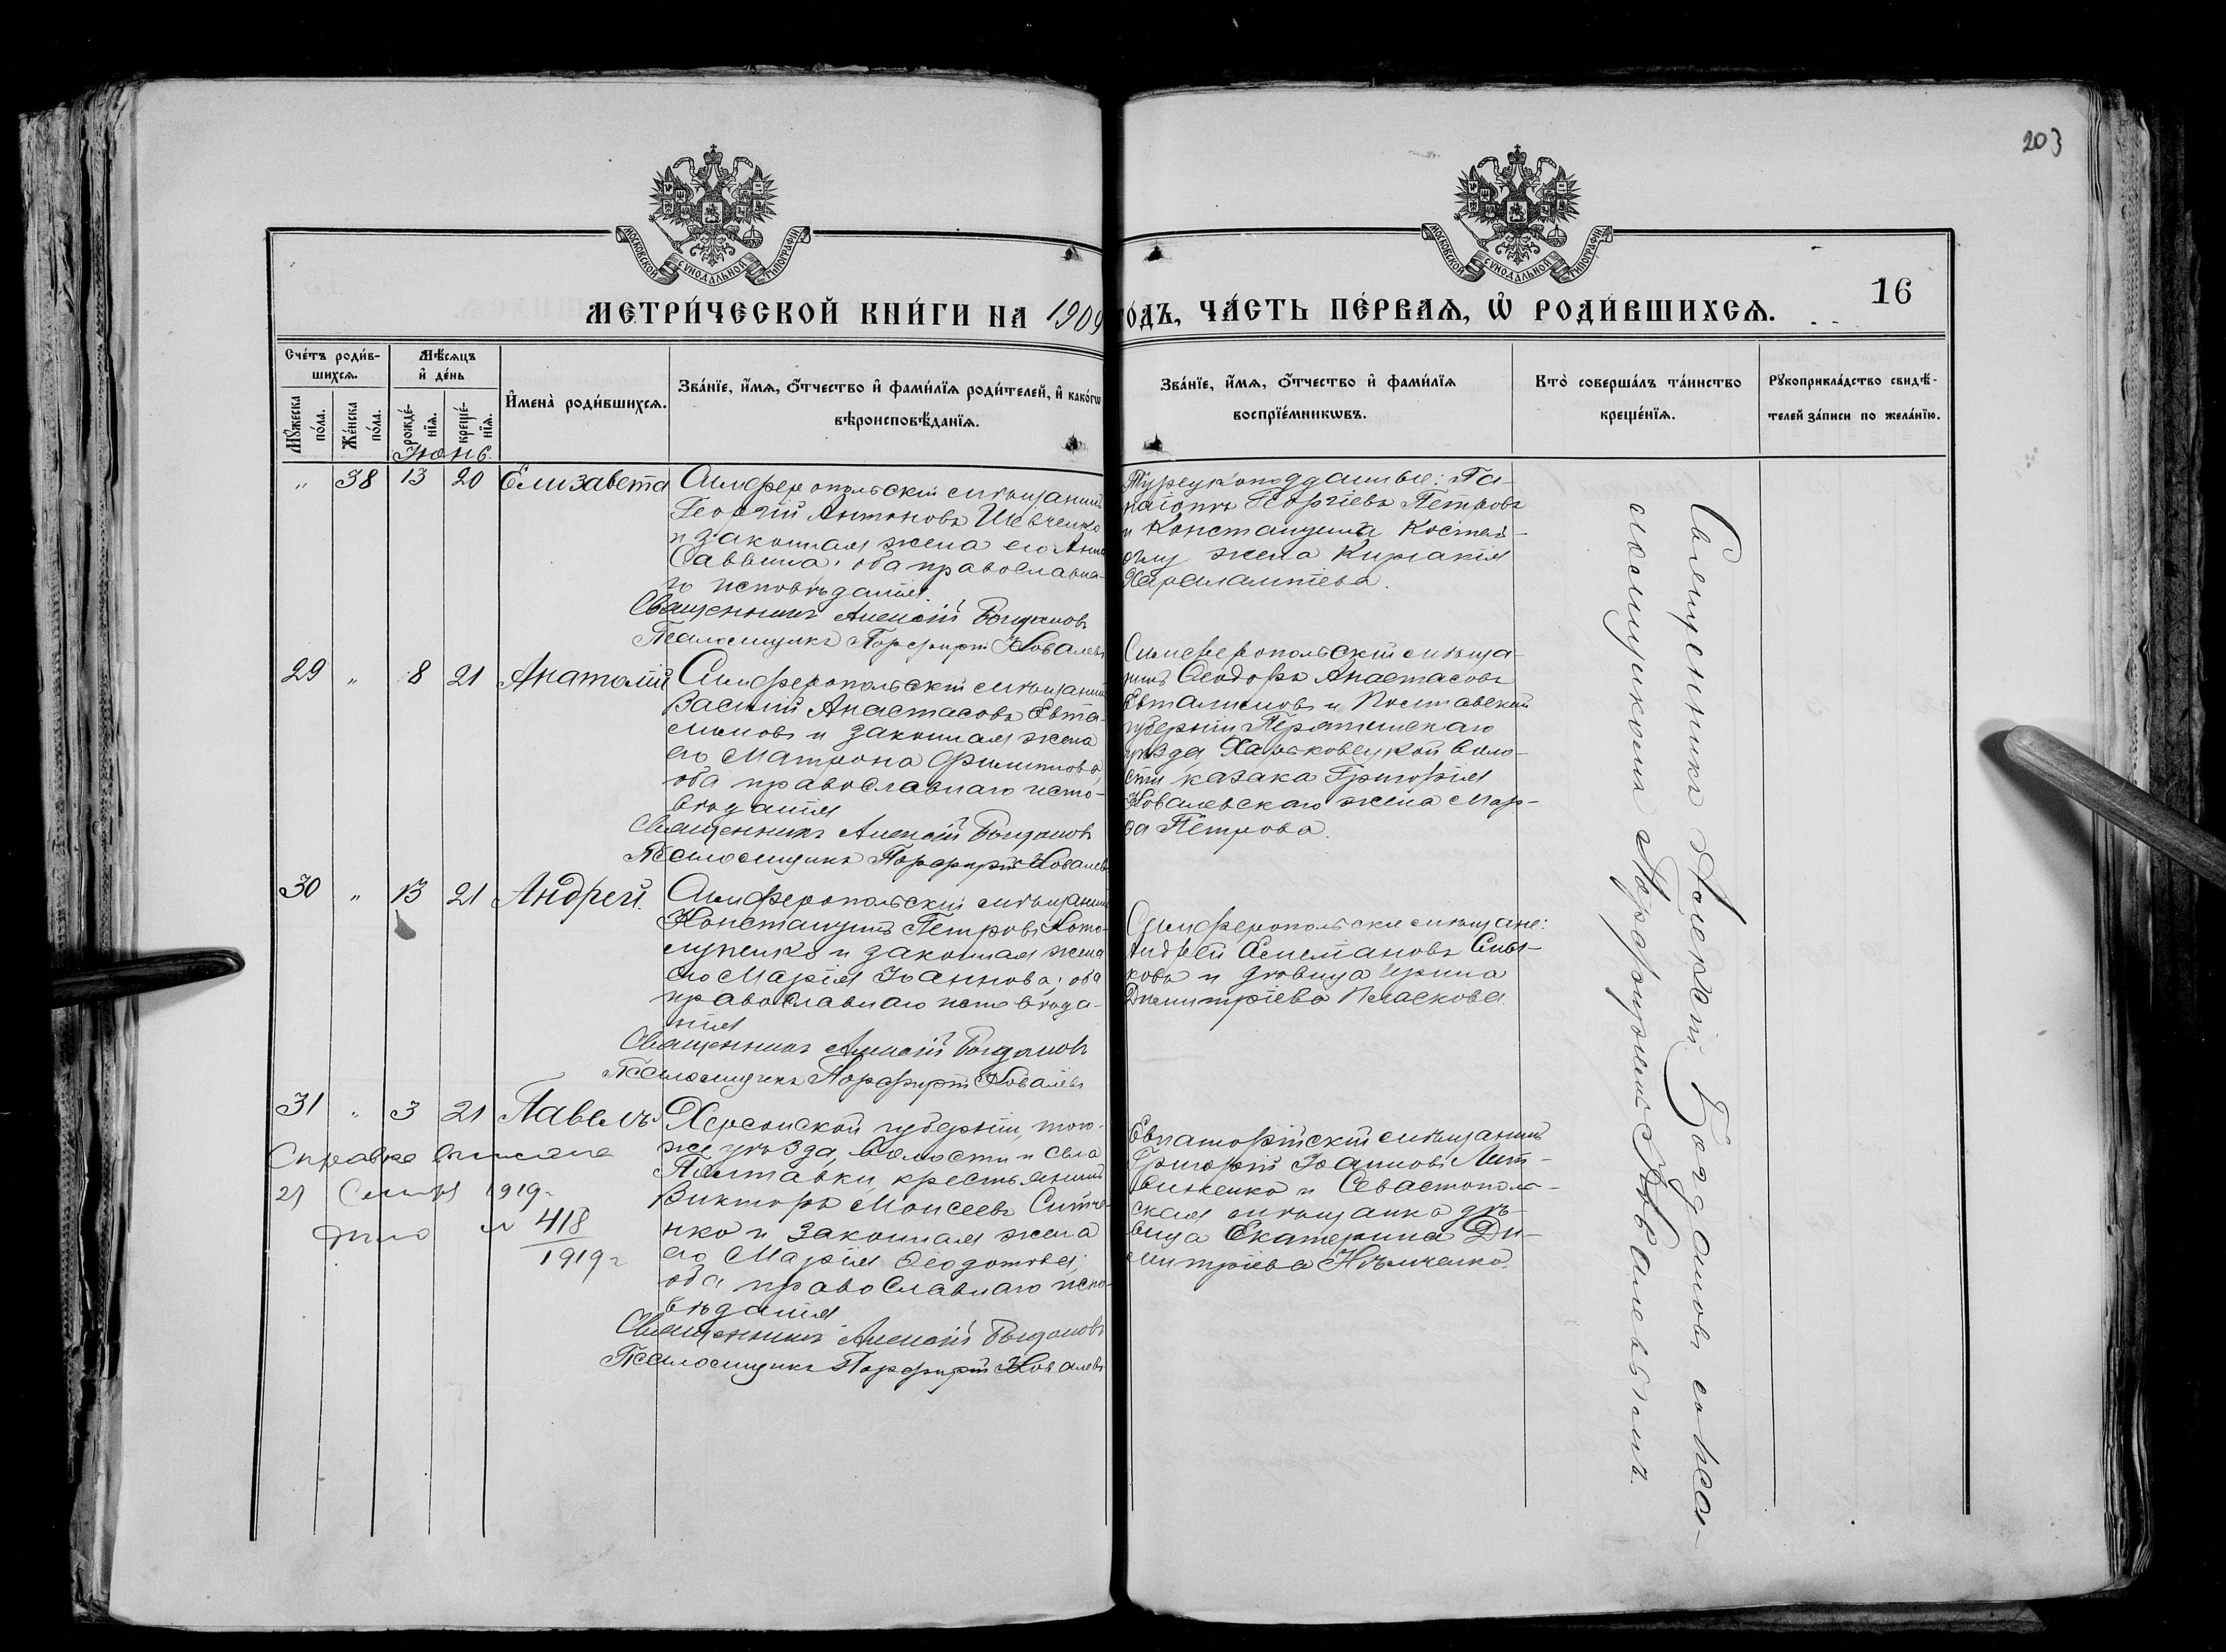 203
МОСКОВСКОЙ СѴНОДАЛЬНОЙ ТИПОГРАФІИ
МОСКОВСКОЙ СѴНОДАЛЬНОЙ ТИПОГРАФІИ
16
МЕТРИ́ЧЕСКОЙ КНИ́ГИ НА 1909
ГО́ДЪ, ЧА́СТЬ ПЕ́РВАѦ, Ѽ РОДИ́ВШИХСѦ.
Сче́тъ роди́в-
шихсѧ.
Мꙋ́жеска по́ла.
Же́нска по́ла.
Мѣ́сѧцъ
и҆ де́нь
рожде́-нїѧ.
креще́-нїѧ.
И҆мена̀ роди́вшихсѧ.
Зва́нїе, и҆́мѧ, ѻ҆́тчество и҆ фами́лїѧ роди́телей, и҆ како́гѡ
вѣроисповѣ́данїѧ.
Зва́нїе, и҆́мѧ, ѻ҆́тчество и҆ фами́лїѧ
воспрїе́мникѡвъ.
Кто̀ соверша́лъ та́инство
креще́нїѧ.
Рꙋкоприкла́дство свидѣ́-
телей за́писи по жела́нїю.
Іюнь.
„ 38 13 20 Елизавета
Симферопольскій мѣщанинъ
Георгій Антоновъ Шевченко
и законная жена его Анна
Саввина; оба православна-
го исповѣданія.
Священникъ Алексій Богдановъ
Псаломщикъ Порфирій Ковалевъ
Турецкоподданные: Па-
наіотъ Георгіевъ Петровъ
и Константина
жена Киріакія
Харалампіева.
29 „ 8 21 Анатолій
Симферопольскій мѣщанинъ
Василій Анастасовъ Евта-
лимовъ и законная жена
его Матрона Филиппова,
оба православнаго испо-
вѣданія
Священникъ Алексій Богдановъ
Псаломщикъ Порфирій Ковалевъ
Симферопольскій мѣща-
нинъ Ѳеодоръ Анастасовъ
Евталимовъ и Полтавской
губерніи Пирятинскаго
уѣзда Харьковецкой воло-
сти казака Григорія
Ковалевскаго жена Мар-
ѳа Петрова.
30 „ 13 21 Андрей.
Симферопольскій мѣщанинъ
Константинъ Петровъ
и законная жена
его Марія Іоаннова; оба
православнаго исповѣда-
нія
Священникъ Алексій Богдановъ
Псаломщикъ Порфирій Ковалевъ
Симферопольскіе мѣщане:
Андрей
и дѣвица Ирина
Димитріева Пласкова.
31 „ 3 21 Павелъ
Херсонской губерніи, того-
же уѣзда, волости и села
Полтавки, крестьянинъ
Викторъ Моисеевъ Ситче-
нко и законная жена
его Марія Ѳеодотова;
оба православнаго испо-
вѣданія
Священникъ Алексій Богдановъ
Псаломщикъ Порфирій Ковалевъ
Евпаторійскій мѣщанинъ
Григорій Іоанновъ Лит-
виненко и Севастополь-
ская мѣщанка дѣ-
вица Екатерина Ди-
митріева Нѣмченко.
Справка выдана
21 1919 г.
№ 418
1919 г
Священникъ Алексій Богдановъ съ пса-
ломщикомъ Порфиріемъ Ковалевымъ.